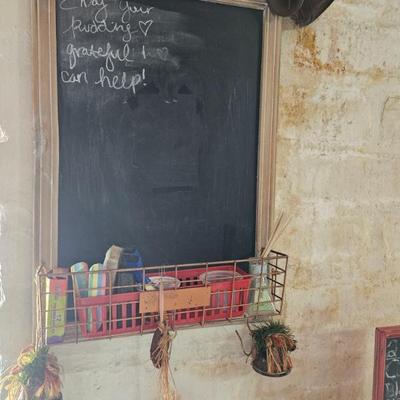 Enjoy your
pudding ♡
grateful I
can help!